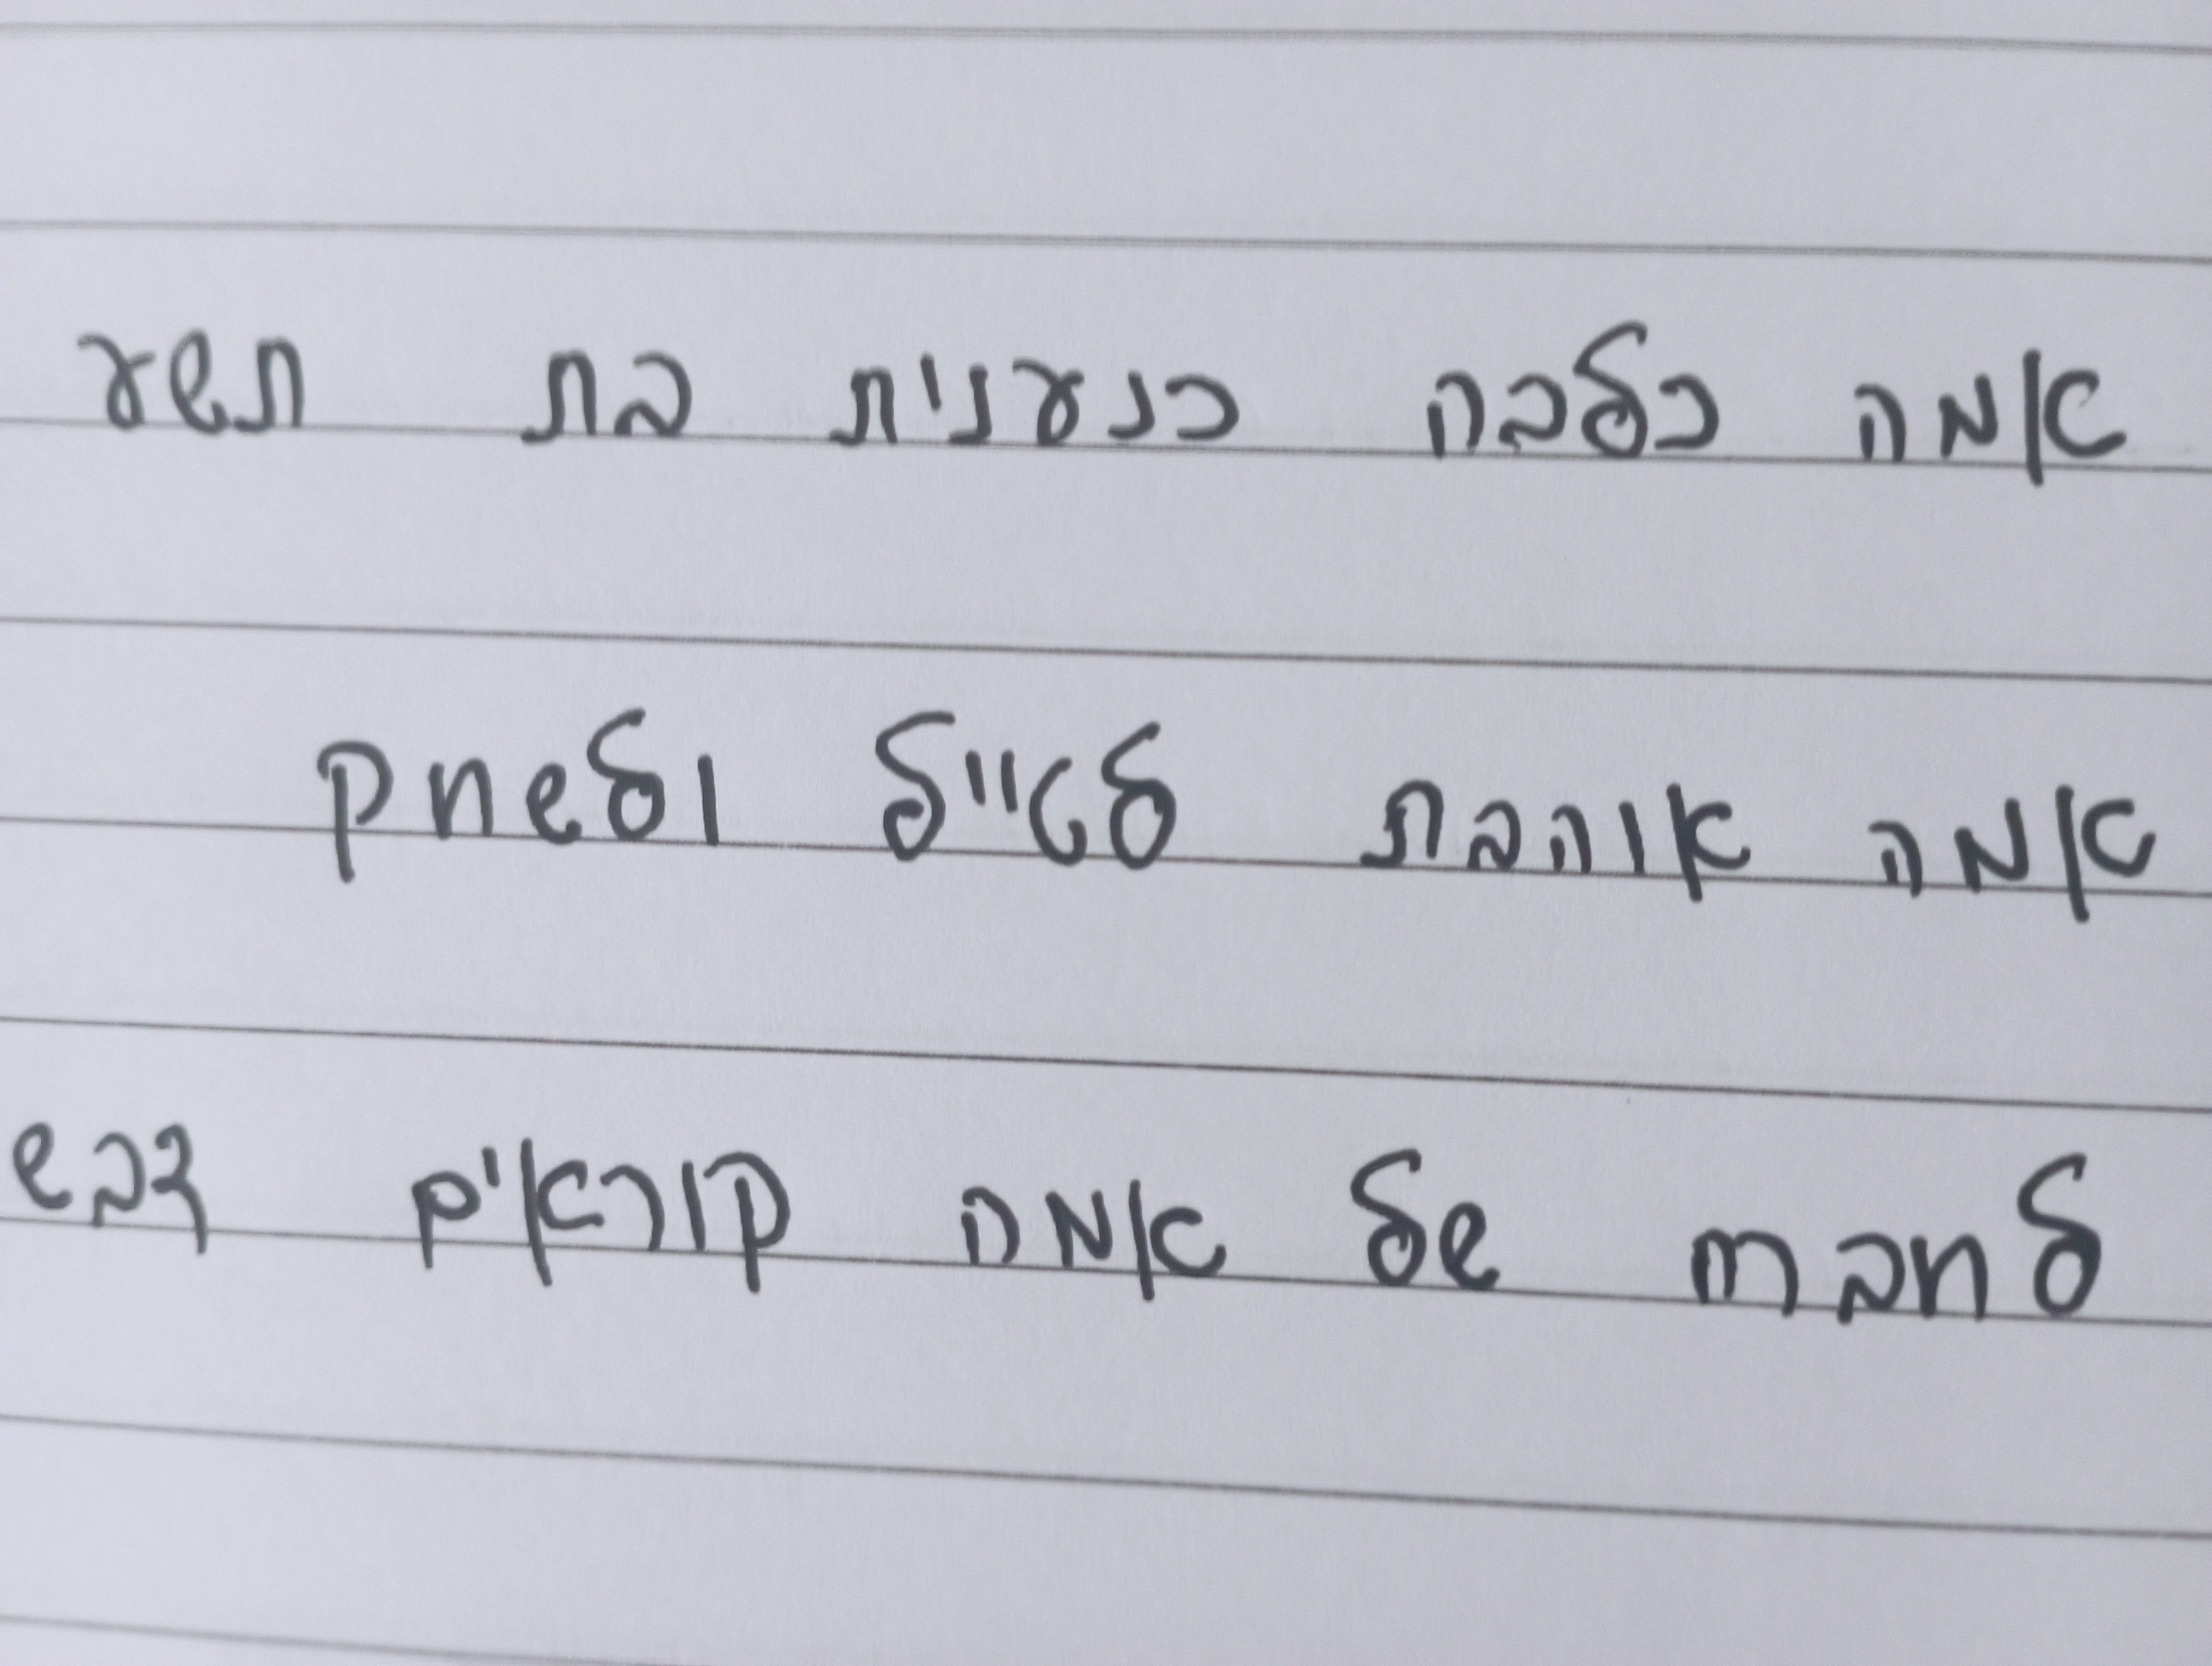 אמה כלבה כנענית בת תשע
אמה אוהבת לטייל ולשחק
לחברה של אמה קוראים דבש